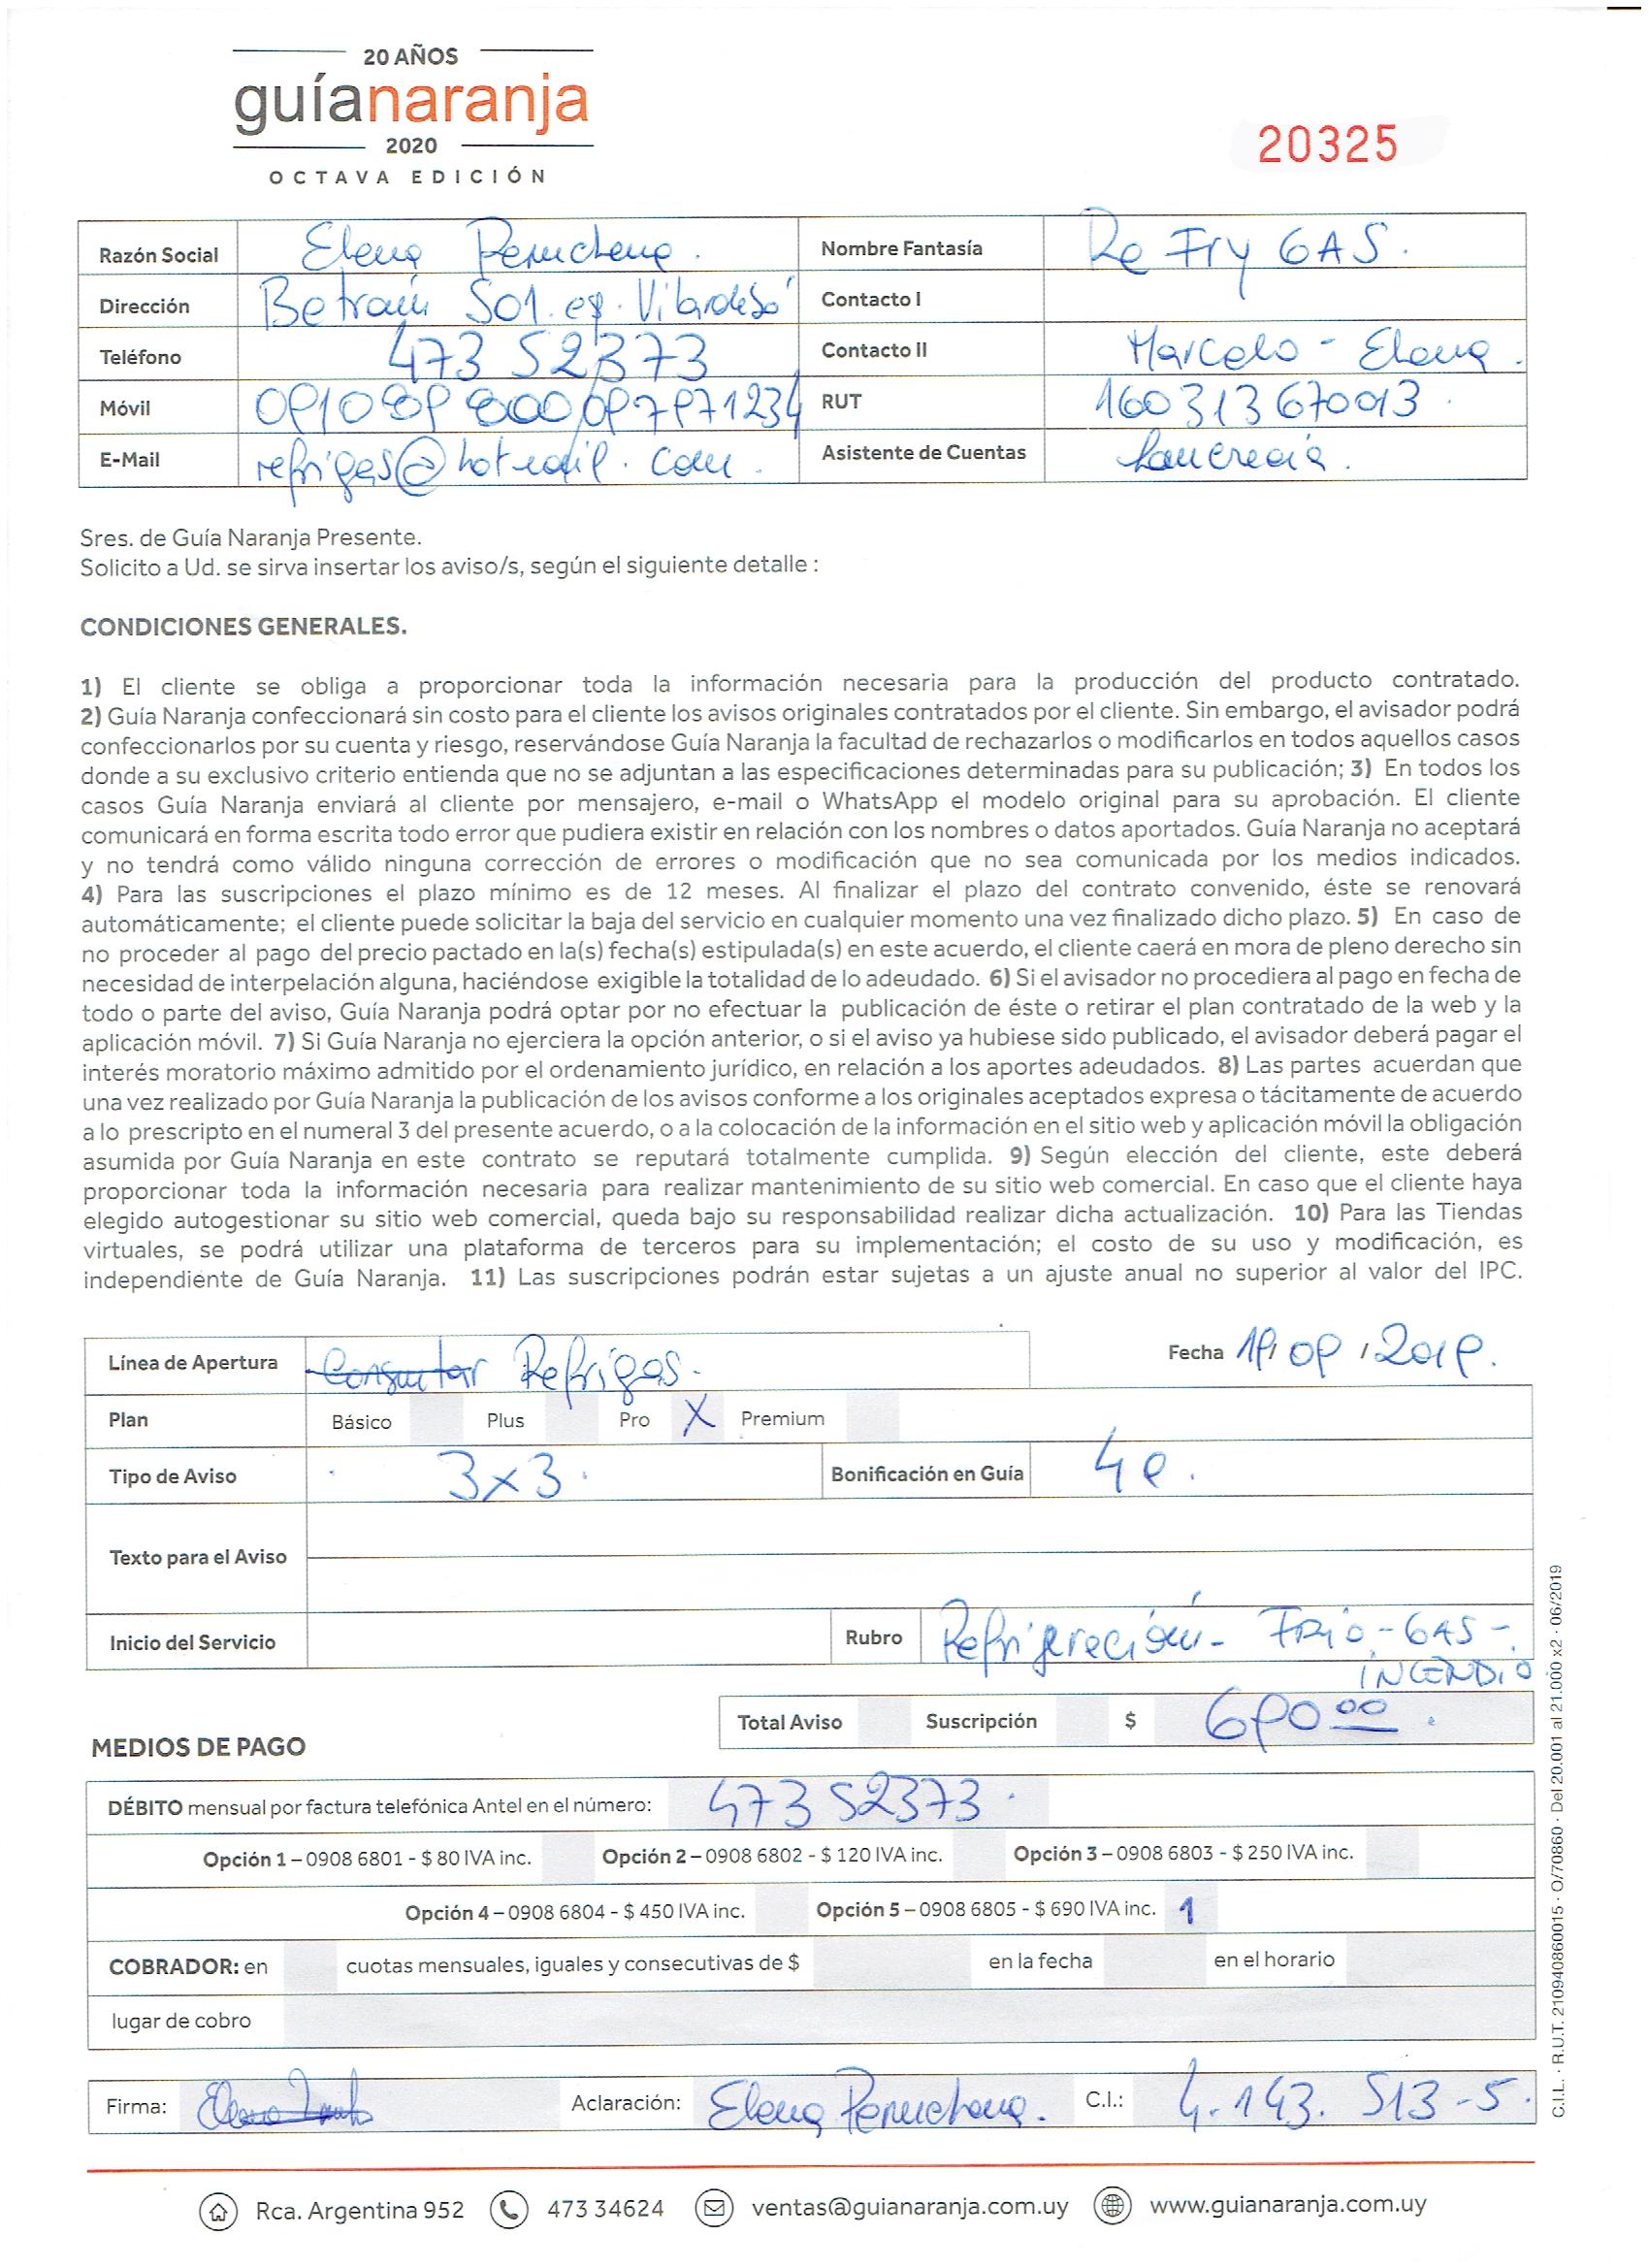 20 AÑOS
guíanaranja
2020
OCTAVA EDICIÓN
20325
Razón Social Elena Peruchena. Nombre Fantasía Re Fry GAS.
Dirección 501. esq. Vilardebó Contacto I
Teléfono 473 52373 Contacto II Marcelo - Elena.
Móvil 097971234 RUT 160313670013.
E-Mail refrigas@hotmail.com. Asistente de Cuentas
Sres. de Guía Naranja Presente.
Solicito a Ud. se sirva insertar los aviso/s, según el siguiente detalle :
CONDICIONES GENERALES.
1) El cliente se obliga a proporcionar toda la información necesaria para la producción del producto contratado.
2) Guía Naranja confeccionará sin costo para el cliente los avisos originales contratados por el cliente. Sin embargo, el avisador podrá
confeccionarlos por su cuenta y riesgo, reservándose Guía Naranja la facultad de rechazarlos o modificarlos en todos aquellos casos
donde a su exclusivo criterio entienda que no se adjuntan a las especificaciones determinadas para su publicación; 3) En todos los
casos Guía Naranja enviará al cliente por mensajero, e-mail o WhatsApp el modelo original para su aprobación. El cliente
comunicará en forma escrita todo error que pudiera existir en relación con los nombres o datos aportados. Guía Naranja no aceptará
y no tendrá como válido ninguna corrección de errores o modificación que no sea comunicada por los medios indicados.
4) Para las suscripciones el plazo mínimo es de 12 meses. Al finalizar el plazo del contrato convenido, éste se renovará
automáticamente; el cliente puede solicitar la baja del servicio en cualquier momento una vez finalizado dicho plazo. 5) En caso de
no proceder al pago del precio pactado en la(s) fecha(s) estipulada(s) en este acuerdo, el cliente caerá en mora de pleno derecho sin
necesidad de interpelación alguna, haciéndose exigible la totalidad de lo adeudado. 6) Si el avisador no procediera al pago en fecha de
todo o parte del aviso, Guía Naranja podrá optar por no efectuar la publicación de éste o retirar el plan contratado de la web y la
aplicación móvil. 7) Si Guía Naranja no ejerciera la opción anterior, o si el aviso ya hubiese sido publicado, el avisador deberá pagar el
interés moratorio máximo admitido por el ordenamiento jurídico, en relación a los aportes adeudados. 8) Las partes acuerdan que
una vez realizado por Guía Naranja la publicación de los avisos conforme a los originales aceptados expresa o tácitamente de acuerdo
a lo prescripto en el numeral 3 del presente acuerdo, o a la colocación de la información en el sitio web y aplicación móvil la obligación
asumida por Guía Naranja en este contrato se reputará totalmente cumplida. 9) Según elección del cliente, este deberá
proporcionar toda la información necesaria para realizar mantenimiento de su sitio web comercial. En caso que el cliente haya
elegido autogestionar su sitio web comercial, queda bajo su responsabilidad realizar dicha actualización. 10) Para las Tiendas
virtuales, se podrá utilizar una plataforma de terceros para su implementación; el costo de su uso y modificación, es
independiente de Guía Naranja. 11) Las suscripciones podrán estar sujetas a un ajuste anual no superior al valor del IPC.
Línea de Apertura Consultar Refrigas. Fecha 19/09/2019.
Plan Básico Plus Pro X Premium
Tipo de Aviso 3x3. Bonificación en Guía
Texto para el Aviso
Inicio del Servicio Rubro Refrigeración - Frio - GAS -
INCENDIO
Total Aviso Suscripción $ 690 00.
MEDIOS DE PAGO
DÉBITO mensual por factura telefónica Antel en el número: 473 52373.
Opción 1 – 0908 6801 - $ 80 IVA inc. Opción 2 – 0908 6802 - $ 120 IVA inc. Opción 3 – 0908 6803 - $ 250 IVA inc.
Opción 4 – 0908 6804 - $ 450 IVA inc. Opción 5 – 0908 6805 - $ 690 IVA inc. 1
COBRADOR: en cuotas mensuales, iguales y consecutivas de $ en la fecha en el horario
lugar de cobro
Firma: Aclaración: Elena Peruchena. C.I.: 4.143.513-5.
Rca. Argentina 952 473 34624 ventas@guianaranja.com.uy www.guianaranja.com.uy
C.I.L. · R.U.T. 210940860015 · O/70860 · Del 20.001 al 21.000 x2 · 06/2019